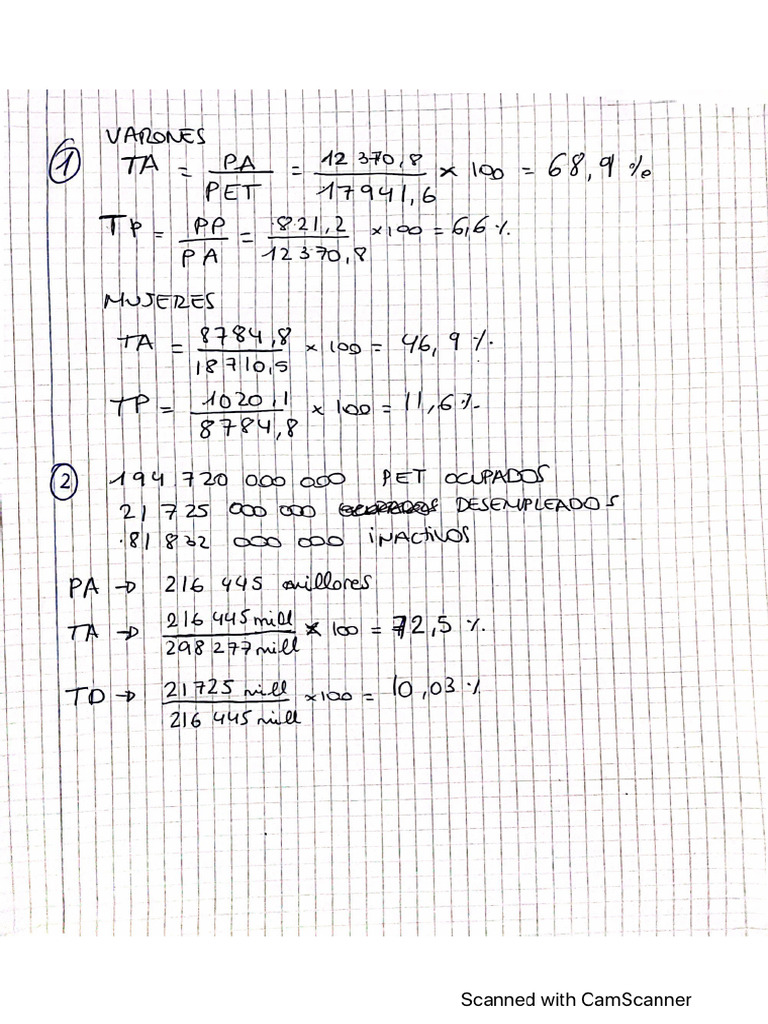 VARONES
① TA = PA / PET = 12 370,8 / 17941,6 × 100 = 68,9 %
TP = PP / PA = 821,2 / 12370,8 ×100 = 6,6 %
MUJERES
TA = 8784,8 / 18710,5 × 100 = 46,9 %
TP = 1020,1 / 8784,8 × 100 = 11,6 %
② 194 720 000 000 PET OCUPADOS
21 725 000 000 DESEMPLEADOS
81 832 000 000 INACTIVOS
PA → 216 445 millones
TA → 216 445 mill / 298 277 mill × 100 = 72,5 %
TD → 21725 mill / 216 445 mill ×100 = 10,03 %
Scanned with CamScanner